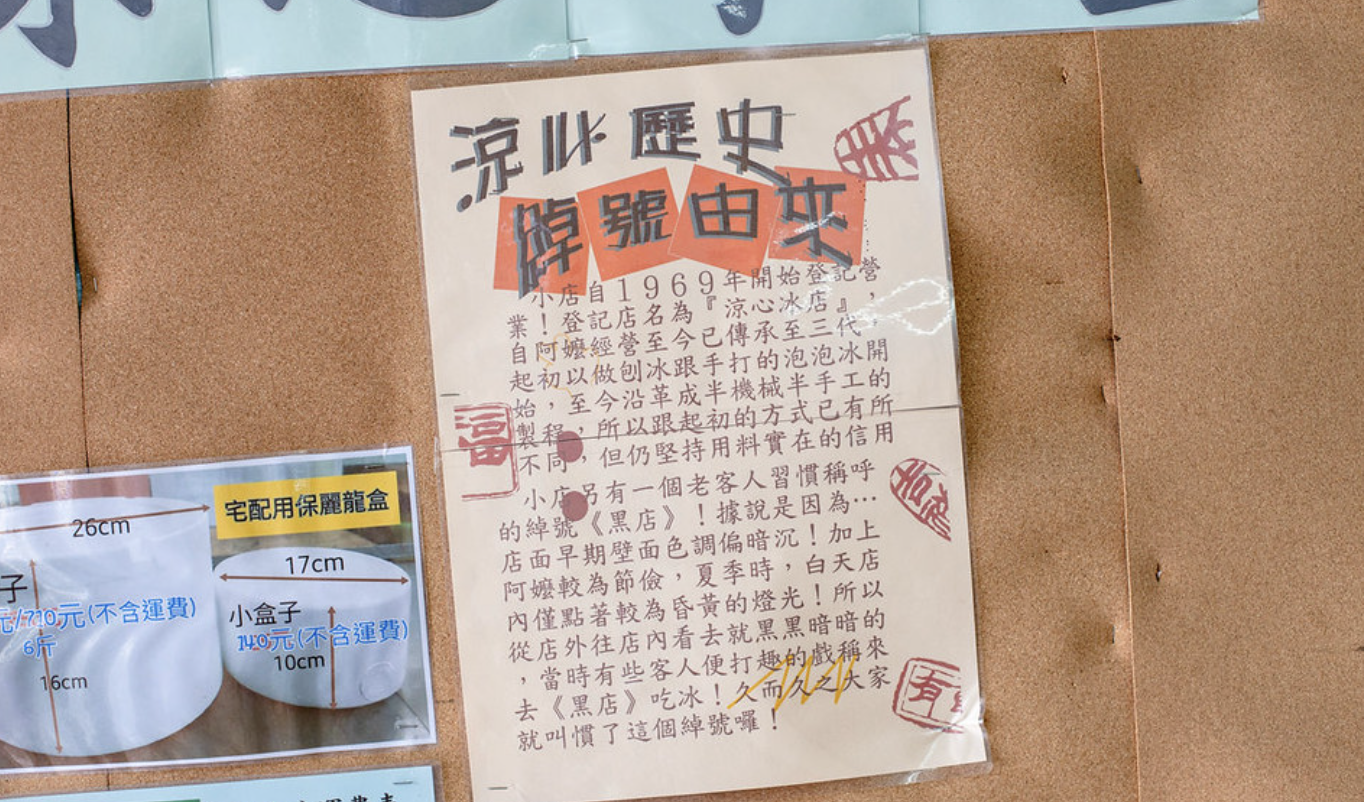 涼心歷史
綽號由來
小店自1969年開始登記營
業！登記店名為『涼心冰店』，
自阿嬤經營至今已傳承至三代，
起初以做刨冰跟手打的泡泡冰開
始，至今沿革成半機械半手工的
製程，所以跟起初的方式已有所
不同，但仍堅持用料實在的信用
小店另有一個老客人習慣稱呼
的綽號《黑店》！據說是因為…
店面早期壁面色調偏暗沉！加上
阿嬤較為節儉，夏季時，白天店
內僅點著較為昏黃的燈光！所以
從店外往店內看去就黑黑暗暗的
，當時有些客人便打趣的戲稱來
去《黑店》吃冰！久而久之大家
就叫慣了這個綽號囉！
富
有
宅配用保麗龍盒
26cm
17cm
子
小盒子
元(不含運費)
140元(不含運費)
6斤
10cm
16cm